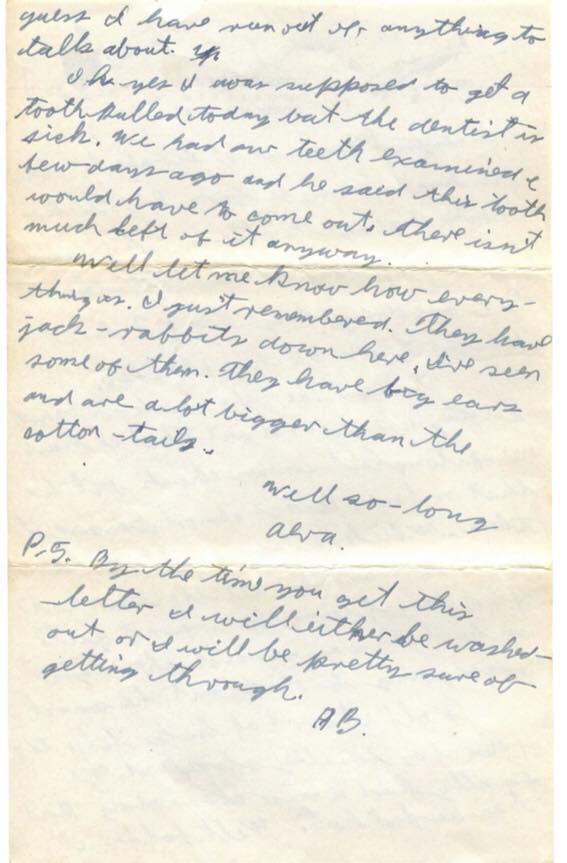 guess I have run out of anything to
talk about.
Oh yes I was supposed to get a
tooth pulled today but the dentist is
sick. We had our teeth examined a
few days ago and he said this tooth
would have to come out, there isn't
much left of it anyway.
Well let me know how every-
thing is. I just remembered. They have
jack-rabbits down here, I've seen
some of them. They have big ears
and are a lot bigger than the
cotton-tails.
Well so-long
Alva.
P.S. By the time you get this
letter I will either be washed-
out or I will be pretty sure of
getting through.
AB.